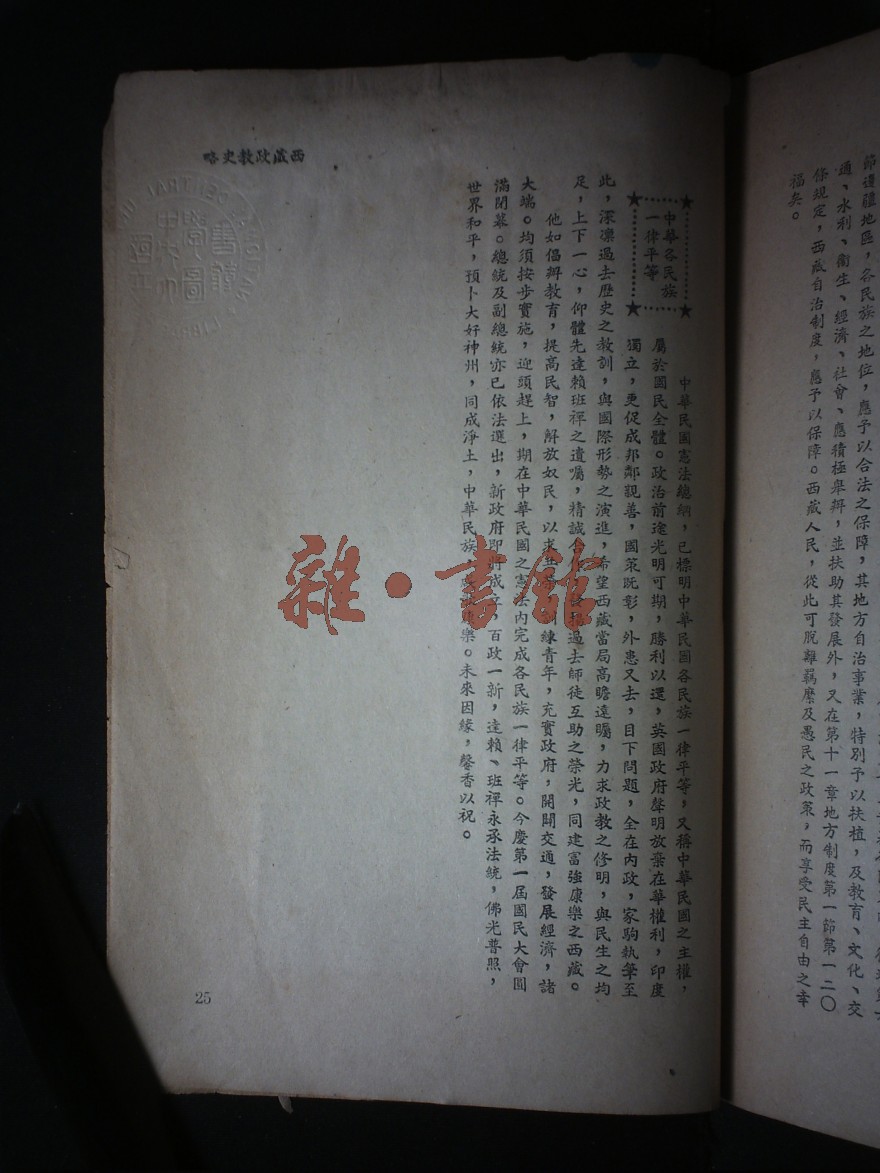 節邊疆地區，各民族之地位，應予以合法之保障，其地方自治事業，特別予以扶植，及教育、文化、交
通、水利、衛生、經濟、社會、應積極舉辦，並扶助其發展外，又在第十一章地方制度第一節第一二〇
條規定，西藏自治制度，應予以保障。西藏人民，從此可脫離羈縻及愚民之政策，而享受民主自由之幸
福矣。
西藏政教史略
中華各民族
一律平等
中華民國憲法總綱，已標明中華民國各民族一律平等，又稱中華民國之主權，
屬於國民全體。政治前途光明可期，勝利以還，英國政府聲明放棄在華權利，印度
獨立，更促成邦鄰親善，國策既彰，外患又去，目下問題，全在內政，家駒執筆至
此，深凜過去歷史之教訓，與國際形勢之演進，希望西藏當局高瞻遠矚，力求政教之修明，與民生之均
足，上下一心，仰體先達賴班禪之遺囑，精誠過去師徒互助之榮光，同建富強康樂之西藏。
他如倡辦教育，提高民智，解放奴民，以求練青年，充實政府，開闢交通，發展經濟，諸
大端。均須按步實施，迎頭趕上，期在中華民國之憲法內完成各民族一律平等。今慶第一屆國民大會圓
滿閉幕。總統及副總統亦已依法選出，新政府即將成立，百政一新，達賴、班禪永承法統，佛光普照，
世界和平，預卜大好神州，同成淨土，中華民族樂。未來因緣，馨香以祝。
25
雜·書館